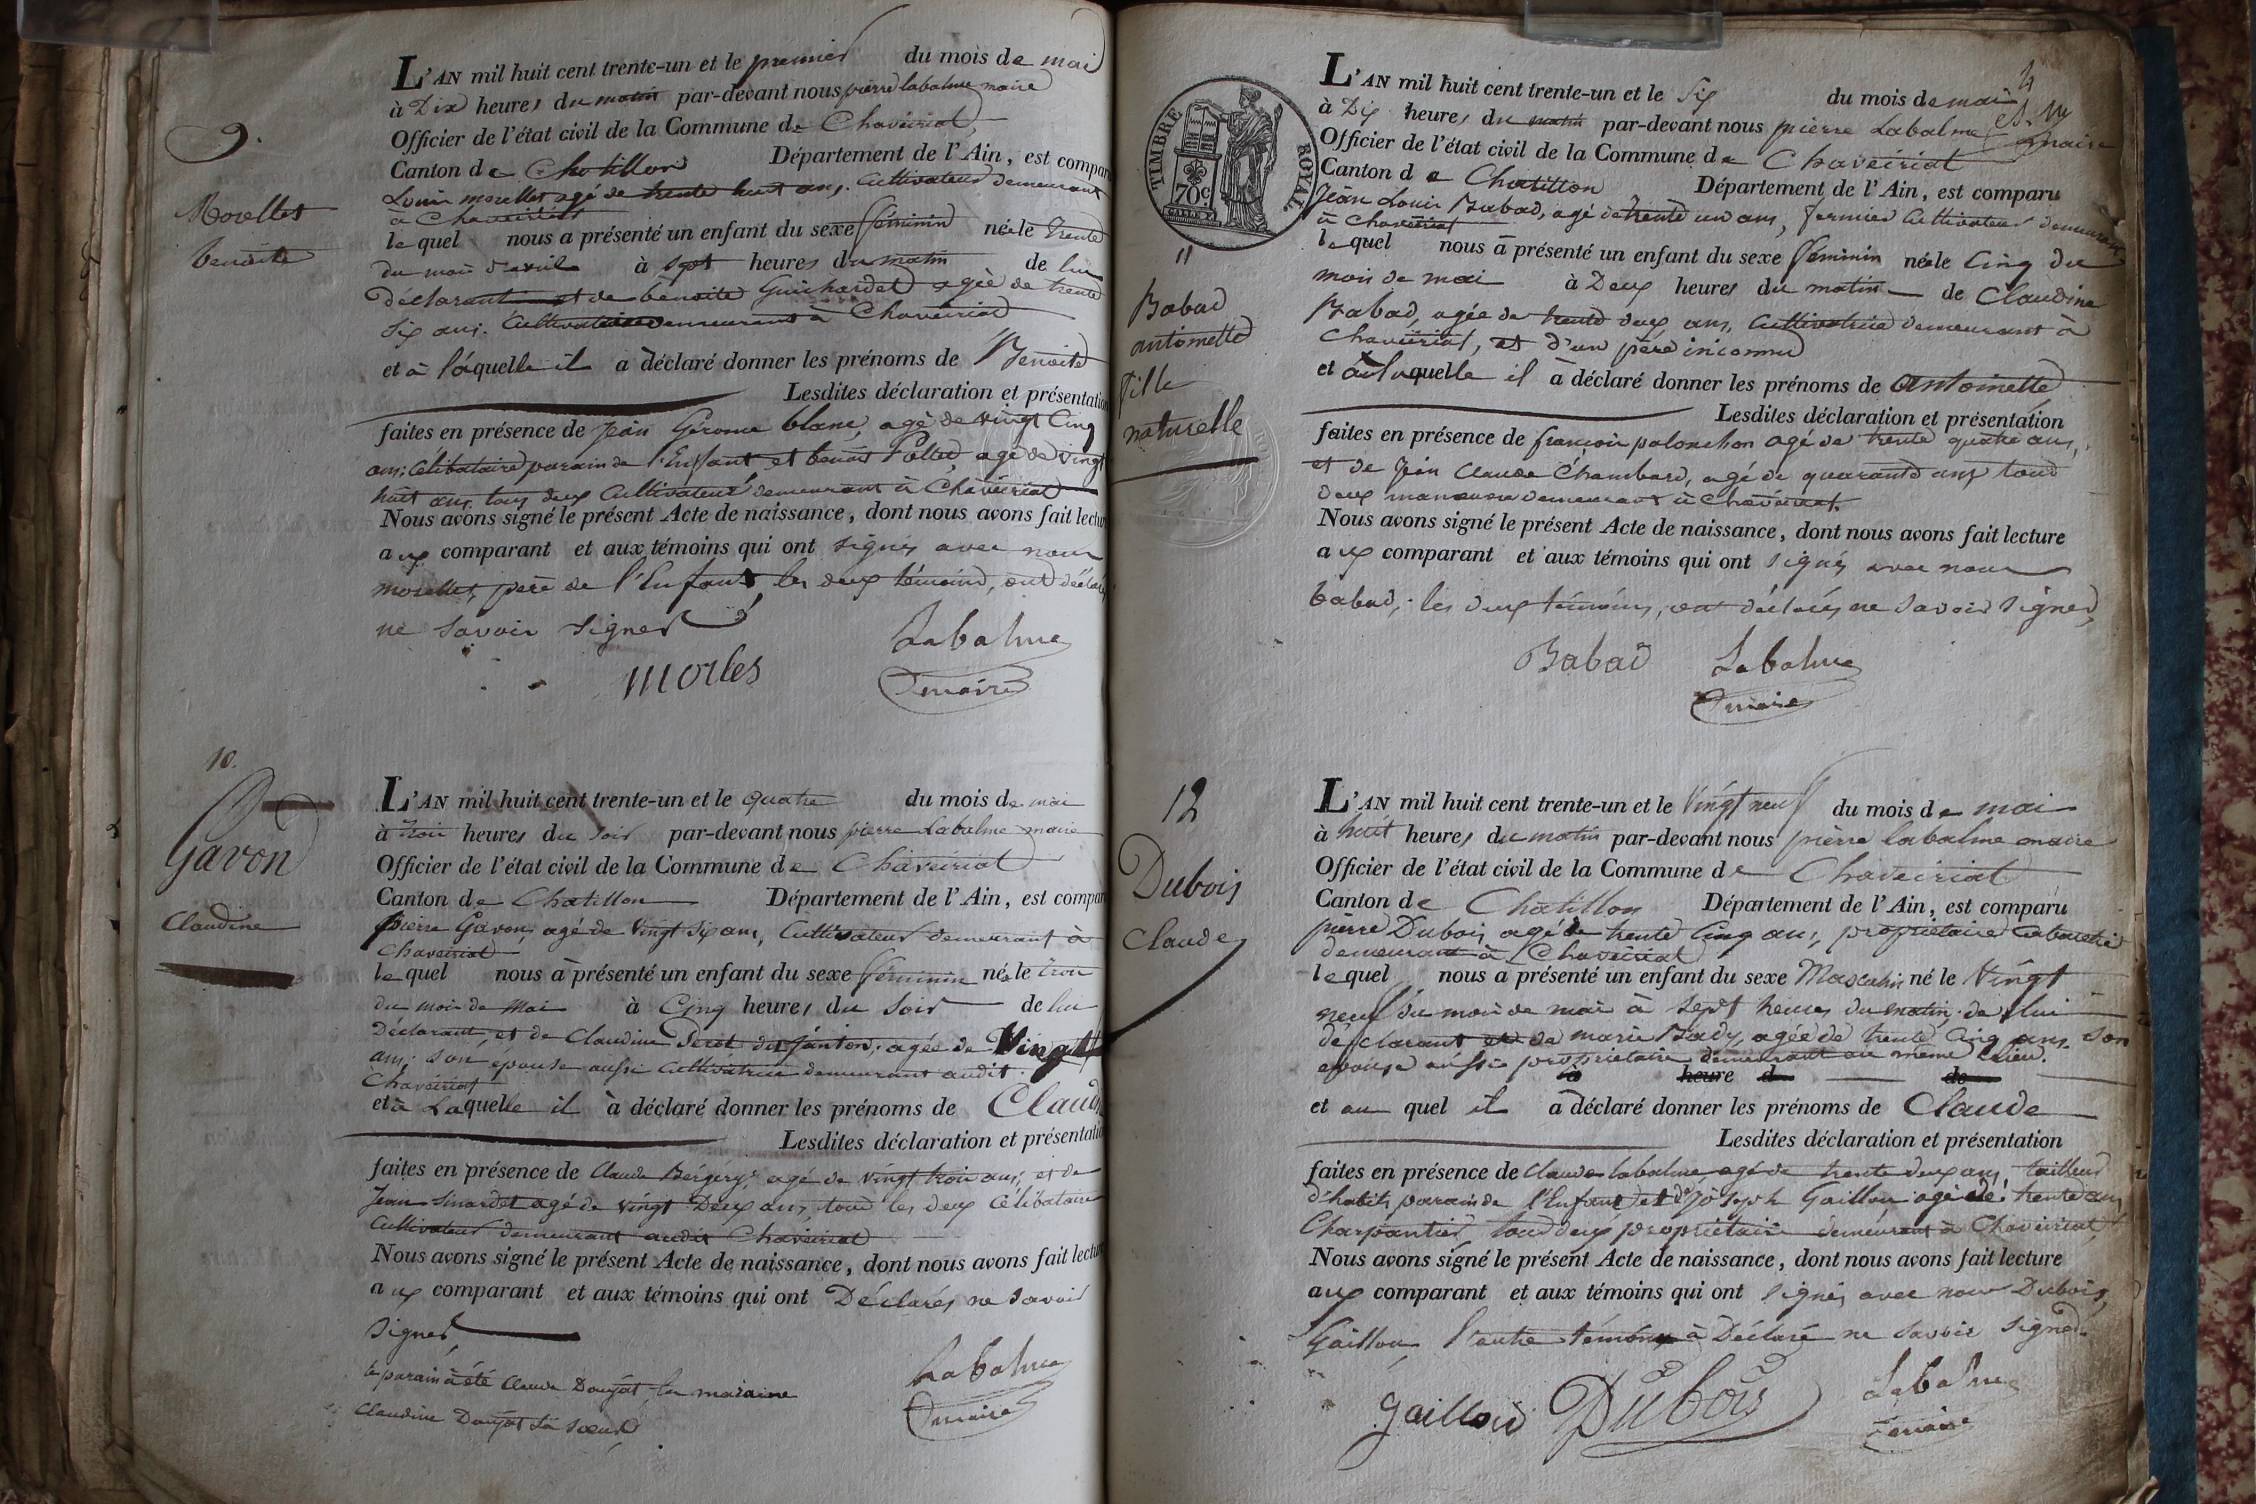 9.
Morellet
benoite
L'AN mil huit cent trente-un et le premier du mois de mai
à Dix heures du matin par-devant nous pierre labalme maire
Officier de l'état civil de la Commune de Chaveiriat
Canton de Chatillon Département de l'Ain, est compar
Louis morellet agé de trente huit ans. Cultivateur demeurant
à Chaveiriat
lequel nous a présenté un enfant du sexe féminin née le trente
du mois d'avril à sept heures du matin de lui
déclarant et de benoite Guichardet agée de trente
six ans. Cultivatrice demeurant à Chaveiriat
et à laquelle il a déclaré donner les prénoms de Benoite
Lesdites déclaration et présentation
faites en présence de Jean Gérome blanc, agé de vingt Cinq
ans; Célibataire parain de l'Enfant et benoit Pollet, agé de vingt
huit ans tous deux Cultivateurs demeurant à Chaveiriat
Nous avons signé le présent Acte de naissance, dont nous avons fait lectur
aux comparant et aux témoins qui ont signés avec nous
morellet, père de l'Enfant, les deux témoins, ont déclarés
ne savoir signer
morles
Labalme
maire
10.
Gavon
Claudine
L'AN mil huit cent trente-un et le quatre du mois de mai
à trois heures du soir par-devant nous pierre Labalme maire
Officier de l'état civil de la Commune de Chaveiriat
Canton de Chatillon Département de l'Ain, est compar
pierre Gavon, agé de vingt six ans, Cultivateur demeurant à
Chaveiriat
lequel nous a présenté un enfant du sexe féminin né le trois
du mois de Mai à Cinq heures du soir de lui
Déclarant, et de Claudine Peret dit janton, agée de Vingt
ans; son epouse aussi Cultivatrice demeurant audit.
Chaveiriat
et à Laquelle il à déclaré donner les prénoms de Claud
Lesdites déclaration et présentatio
faites en présence de Claude Bergery agé de vingt trois ans, et de
Jean Sinardet agé de vingt Deux ans, tous les deux Célibataire
Cultivateur demeurant audit Chaveiriat
Nous avons signé le présent Acte de naissance, dont nous avons fait lectur
aux comparant et aux témoins qui ont Déclarés ne savoir
signer
le parain à été Claude Doujat la maraine
Claudine Doujat sa soeur
Labalme
maire
4
TIMBRE ROYAL.
70c.
11
Babad
antoinette
fille
naturelle
L'AN mil huit cent trente-un et le Six du mois de mai
à Dix heures du matin par-devant nous pierre Labalme maire
Officier de l'état civil de la Commune de Chaveiriat
Canton de Chatillon Département de l'Ain, est comparu
Jean Louis Babad, agé de trente un ans, fermier Cultivateur demeurant
à Chaveiriat
lequel nous à présenté un enfant du sexe féminin née le Cinq du
mois de mai à Deux heures du matin de Claudine
Babad, agée de trente deux ans, Cultivatrice demeurant à
Chaveiriat, et d'un père inconnu
et à laquelle il à déclaré donner les prénoms de Antoinette
Lesdites déclaration et présentation
faites en présence de françois polonchon agé de trente quatre ans,
et de Jean Claude Chambard, agé de quarante ans tous
deux manouvre demeurant à Chaveiriat.
Nous avons signé le présent Acte de naissance, dont nous avons fait lecture
aux comparant et aux témoins qui ont signés avec nous
babad, les deux témoins, ont déclarés ne savoir signer,
Babad
Labalme
maire
12
Dubois
Claude
L'AN mil huit cent trente-un et le Vingt neuf du mois de mai
à huit heures du matin par-devant nous pierre labalme maire
Officier de l'état civil de la Commune de Chaveiriat
Canton de Chatillon Département de l'Ain, est comparu
pierre Dubois agé de trente Cinq ans, propriétaire Cabaretié
demeurant à Chaveiriat
lequel nous a présenté un enfant du sexe Masculin né le Vingt
neuf du mois de mai à sept heures du matin de lui
déclarant et de marie Bady, agée de trente Cinq ans son
epouse aussi propriétaire demeurant au même Lieu.
à heure d de
et au quel il à déclaré donner les prénoms de Claude
Lesdites déclaration et présentation
faites en présence de Claude labalme agé de trente deux ans, tailleur
d'habits parain de l'Enfant et de Joseph Gaillon agé de trente ans
Charpantier, tous deux propriétaire demeurant à Chaveiriat,
Nous avons signé le présent Acte de naissance, dont nous avons fait lecture
aux comparant et aux témoins qui ont signés avec nous Dubois,
Gaillon l'autre témoin à Déclaré ne savoir signer.
gaillon
Dubois
Labalme
maire